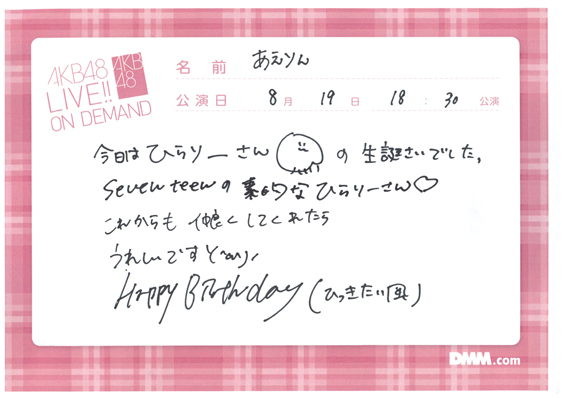 AKB48
LIVE!!
ON DEMAND
AKB
48
名前 あえりん
公演日 8月 19日 18:30 公演
今日はひらりーさん の 生誕さいでした。
Seventeenの素的なひらりーさん♡
これからも 仲良くしてくれたら
うれしいです
Happy Birthday (ひっきたい風)
DMM.com